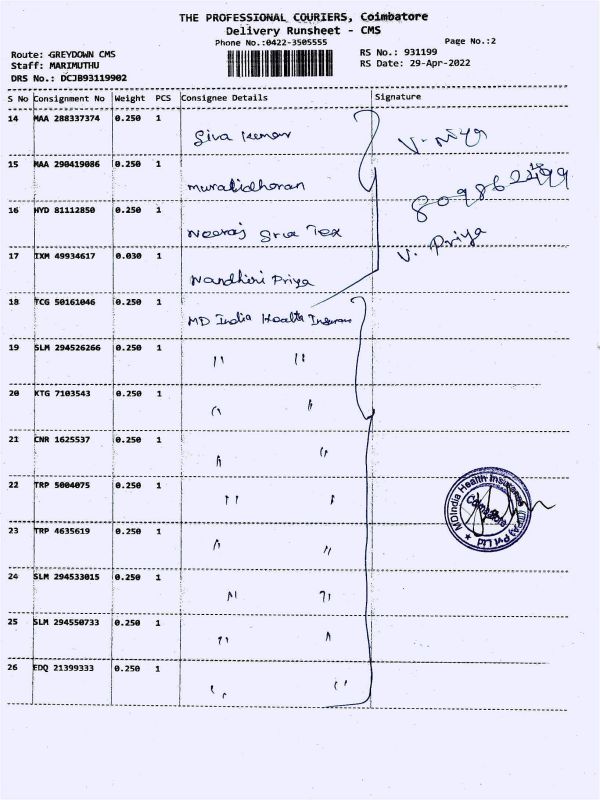 THE PROFESSIONAL COURIERS, Coimbatore
Delivery Runsheet - CMS
Phone No.:0422-3505555 Page No.:2
Route: GREYDOWN CMS RS No.: 931199
Staff: MARIMUTHU RS Date: 29-Apr-2022
DRS No.: DCJB93119902
S No Consignment No Weight PCS Consignee Details Signature
14 MAA 288337374 0.250 1 Siva kumar V. Priya
15 MAA 290419086 0.250 1 muralidharan
16 HYD 81112850 0.250 1 Neeraj Sree Tex V. Priya
17 IXM 49934617 0.030 1 Nandhini Priya
18 TCG 50161046 0.250 1 MD India Health Insuran
19 SLM 294526266 0.250 1 " "
20 KTG 7103543 0.250 1 " "
21 CNR 1625537 0.250 1 " "
22 TRP 5004075 0.250 1 " "
23 TRP 4635619 0.250 1 " "
24 SLM 294533015 0.250 1 " "
25 SLM 294550733 0.250 1 " "
26 EDQ 21399333 0.250 1 " "
MDIndia Health Insurance (TPA) Pvt Ltd
Coimbatore